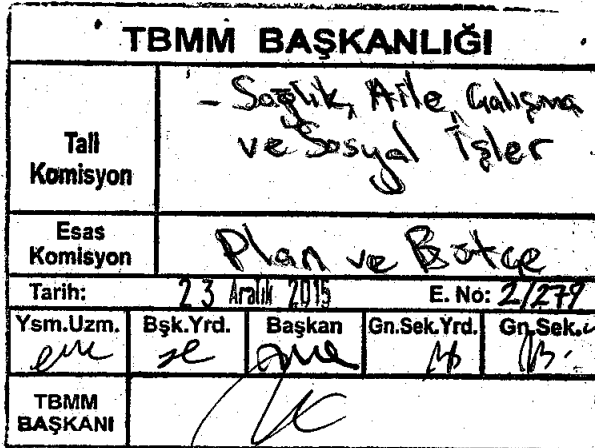 TBMM BAŞKANLIĞI
Tali
Komisyon
- Sağlık, Aile, Çalışma
ve Sosyal İşler
Esas
Komisyon
Plan ve Bütçe
Tarih: 23 Aralık 2015 E. No: 2/279
Ysm.Uzm. Bşk.Yrd. Başkan Gn.Sek.Yrd. Gn.Sek.
TBMM
BAŞKANI